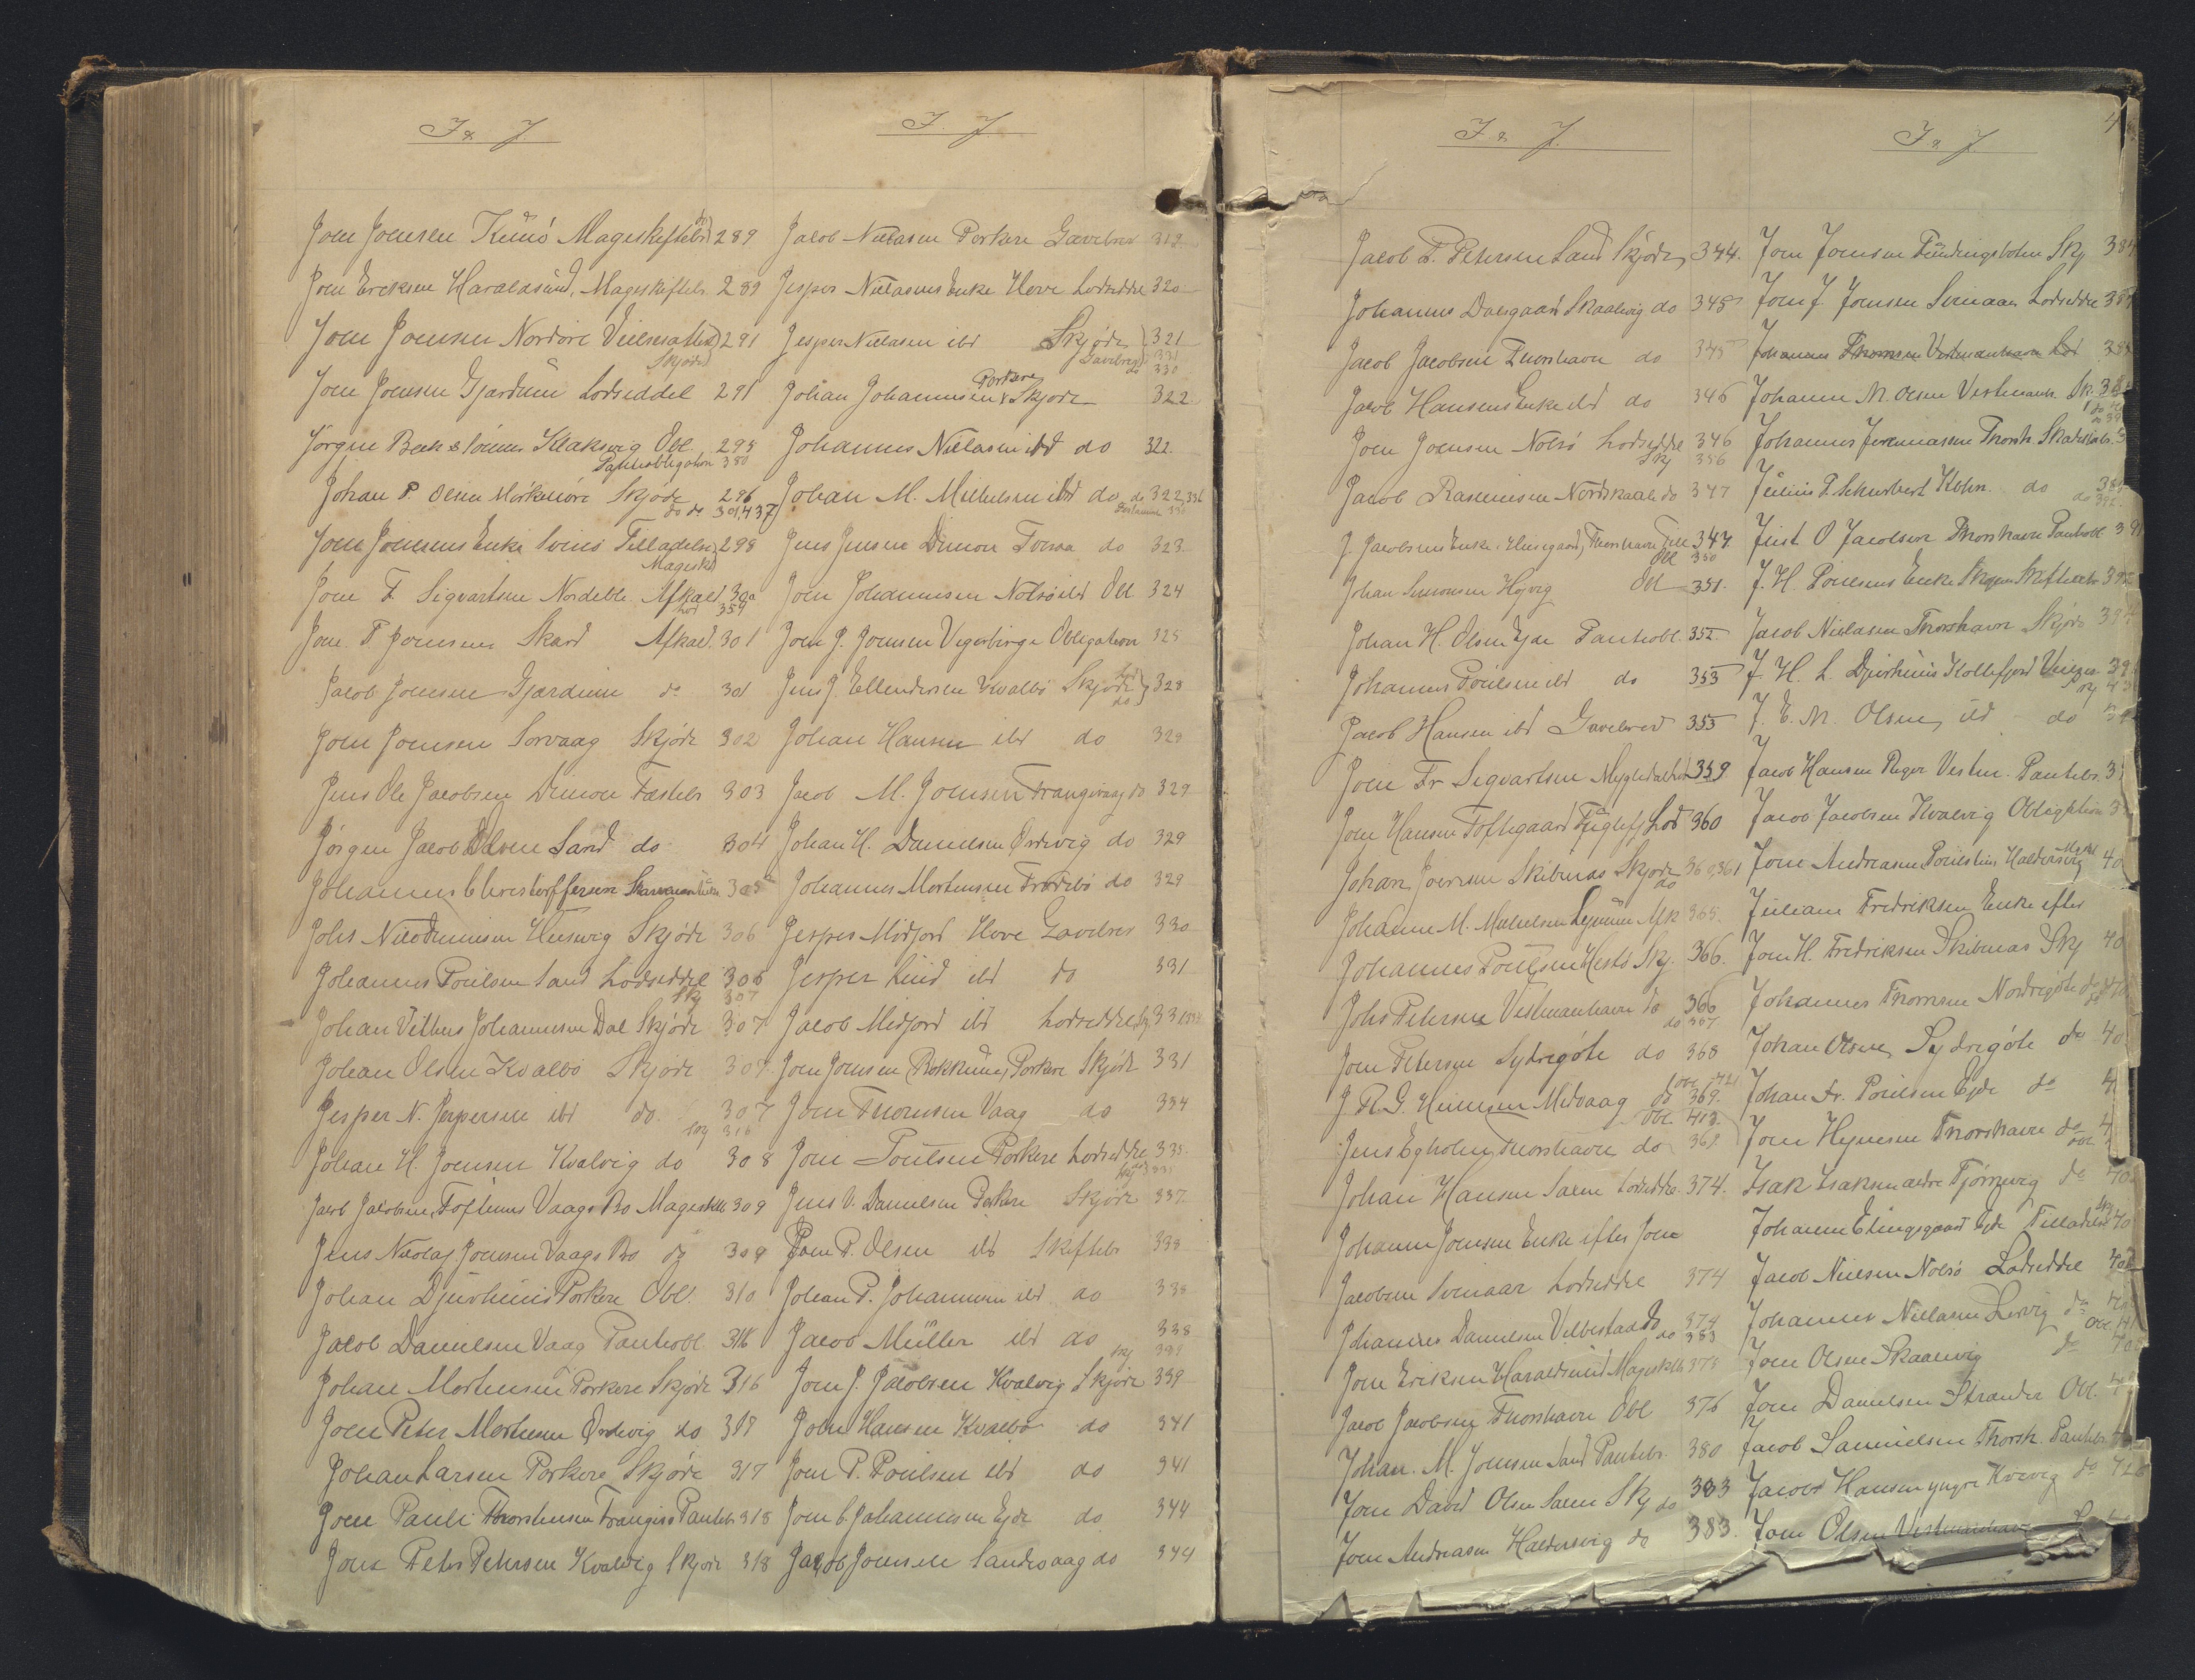 I & J.
Joen Joensen Kunö Mageskiftebr. do 289
Joen Ericksen Haraldsund, Mageskiftebr. 289
Joen Joensen Nordöre Vielsesattest 291
Skjøde
Joen Joensen Gjardum Lodseddel 291
Jörgen Beck & Sönner Klaksvig Obl. 295
Panteobligation 380
Johan P. Olsen Mörkenöre Skjøde 296
do do 301,437
Joen Joensens Enke Svinö Tilladelse 298
Magesk.
Joen F. Sigvartsen Nordeble Afkald 300
Lod 359
Joen P. Joensen Skard Afkald. 301
Jacob Joensen Gjardum do 301
Joen Joensen Sorvaag Skjøde 302
Jens Ole Jacobsen Dimon Fæstebr 303
Jörgen Jacob Olsen Sand do 304
Johannes Christoffersen 305
Johs Nicodemussen Huusevig Skjøde 306
Johannes Poulsen Sand Lodseddel 306
Skj 307
Johan Vilhus Johannesen Dal Skjøde 307
Johan Olsen Kvalbö Skjøde 307
Jesper N. Jespersen ibd do. 307
Skj 316
Johan H. Joensen Kvalvig do 308
Jacob Jacobsen, Toftenes Vaags Bo Mageskb 309
Jens Nicolaj Joensen Vaags Bo dg 309
Johan Djurhuus Porkere Obl 310
Jacob Danielsen Vaag Panteobl. 316
Johan Mortensen Porkere Skjøde 316
Joen Peter Mortensen Ördevig do 317
Johan Larsen Porkere Skjøde 317
Joen Pauli Thorstensen Frangiso Pantebr 318
Jens Peter Petersen Kvalvig Skjøde 318
I. J.
Jacob Niclasen Porkere Gavebrev 319
Jesper Niclasens Enke Hove Lodseddel 320
Jesper Niclasen ibd Skjøde 321
Gavebrev 331
do 330
Johan Johannesen Porkere Skjøde 322
Johannes Niclasen ibd do 322
Johan M. Mikkelsen ibd do do 322,336
Jens Jensen Dimon Forvaa do 323
Joen Johannesen Nolsö ibd Obl 324
Joen J. Joensen Vegerbirge Obligation 325
Jens J. Ellendersen Kvalbö Skjøde 328
do
Johan Hansen ibd do 329
Jacob M. Joensen Trangisvaag do 329
Johan H. Danielsen Ørdevig do 329
Johannes Mortensen Frodebö do 329
Jesper Midjord Hove Gavebrev 330
Jesper Lund ibd do 331
Jacob Midjord ibd Lodseddel 331
Joen Joensen (Rokkum), Porkere Skjøde 331
Joen Thomsen Vaag do 334
Joen Poulsen Porkere Lodseddel 335
Jens V. Danielsen Porkere Skjøde 337
Joen P. Olsen ibd Skiftebr 338
Johan P. Johannesen ibd do 338
Jacob Müller ibd do 338
Skj 389
Joen J. Jacobsen Kvalvig Skjøde 339
Joen Hansen Kvalbö do 341
Joen P. Poulsen ibd do 341
Joen C. Johannesen Ejde do 344
Jacob Joensen Sandevaag do 344
I & J.
Jacob P. Petersen Sand Skjøde, 344.
Johannes Dalsgaard Skaalevig do 345
Jacob Jacobsen Thorshavn do 345
Jacob Hansens Enke ibd do 346
Joen Joensen Nolsö Lodseddel 346
Skj 356
Jacob Rasmussen Nordskaale do 347
J. Jacobsens Enke, Thorshavn Till 347
Obl 350
Johan Simonsen Højvig Obl 351.
Johan H. Olsen Ejde Panteobl. 352.
Johannes Poulsen ibd do 353
Jacob Hansen ibd Gavebrev 355
Joen Fr Sigvartsen Mygledal Lod 359
Joen Hansen Toftegaard Fuglefj Lod 360
Johan Joensen Skibenæs Skjøde 360,361
do
Johanne M. Michelsen Leynum Afk 365.
Johannes Poulsen Hestö Skj. 366.
Johs Petersen Vestmanhavn do 366
do 367
Joen Petersen Sydregöte do 368
Obl 421
J. R. G. Heinesen Midvaag do 369.
Obl. 413.
Jens Egholm Thorshavn do 369.
Johan Hansen Salen Lodseddel. 374.
Johanne Joensen Enke efter Joen
Jacobsen Sumaar Lodseddel 374
Johannes Danielsen Velbestad do 374
do 383
Joen Eriksen Haraldsund Mageskb 375
Jacob Jacobsen Thorshavn Obl 376
Johan. M. Joensen Sand Pantebr. 380
Joen David Olsen Salen Skj do 383
Joen Andreasen Haldersvig do 383.
I & J
Joen Joensen Fundingsbotn Skj 384
Joen J. Joensen Sumaar Lodseddel 384
Johannes Thomsen Vestmanhavn Lod 38
Johanne M. Olsen Vestmanh. Sk. 38
Johannes Joenmassen Thorsh. Skadeslösbr.
Julius P. Schubert Kbhn. do 38
do 392.
Just O Jacobsen Thorshavn Panteobl 39
J. H. Poulsens Enke Skopen Skifteextr 39
Jacob Niclasen Thorshavn Skjøde 39
J. H. L. Djurhuus Kollefjord 39
J. E. M. Olsen, ibd do
Jacob Hansen Reyn Vestm. Pantebr. 3
Jacob Jacobsen Kvalvig Obligation 3
Joen Andreasen Poulstun Haldersvig 40
Juliane Fredriksen Enke efter
Joen H. Fredriksen Skibenæs Skj 40
Johannes Thomsen Nordregöte do
Johan Olsen Sydregöte do 40
Johan Fr. Poulsen Ejde do 4
Joen Hejnesen Thorshavn do 4
Obl
Isak Isaksen ældre Tjörnevig do 40
Johanne Elingsgaard Ejde Tilladelse 40
Jacob Nielsen Nolsö Lodseddel 40
Johannes Niclasen Lervig do
Obl
Joen Olsen Skaalevig do 40
Joen Danielsen Strænder Obl. 4
Jacob Samuelsen Thorsh. Pantebr
Jacob Hansen yngre Kvivig do 42
Joen Olsen Vestmanhavn